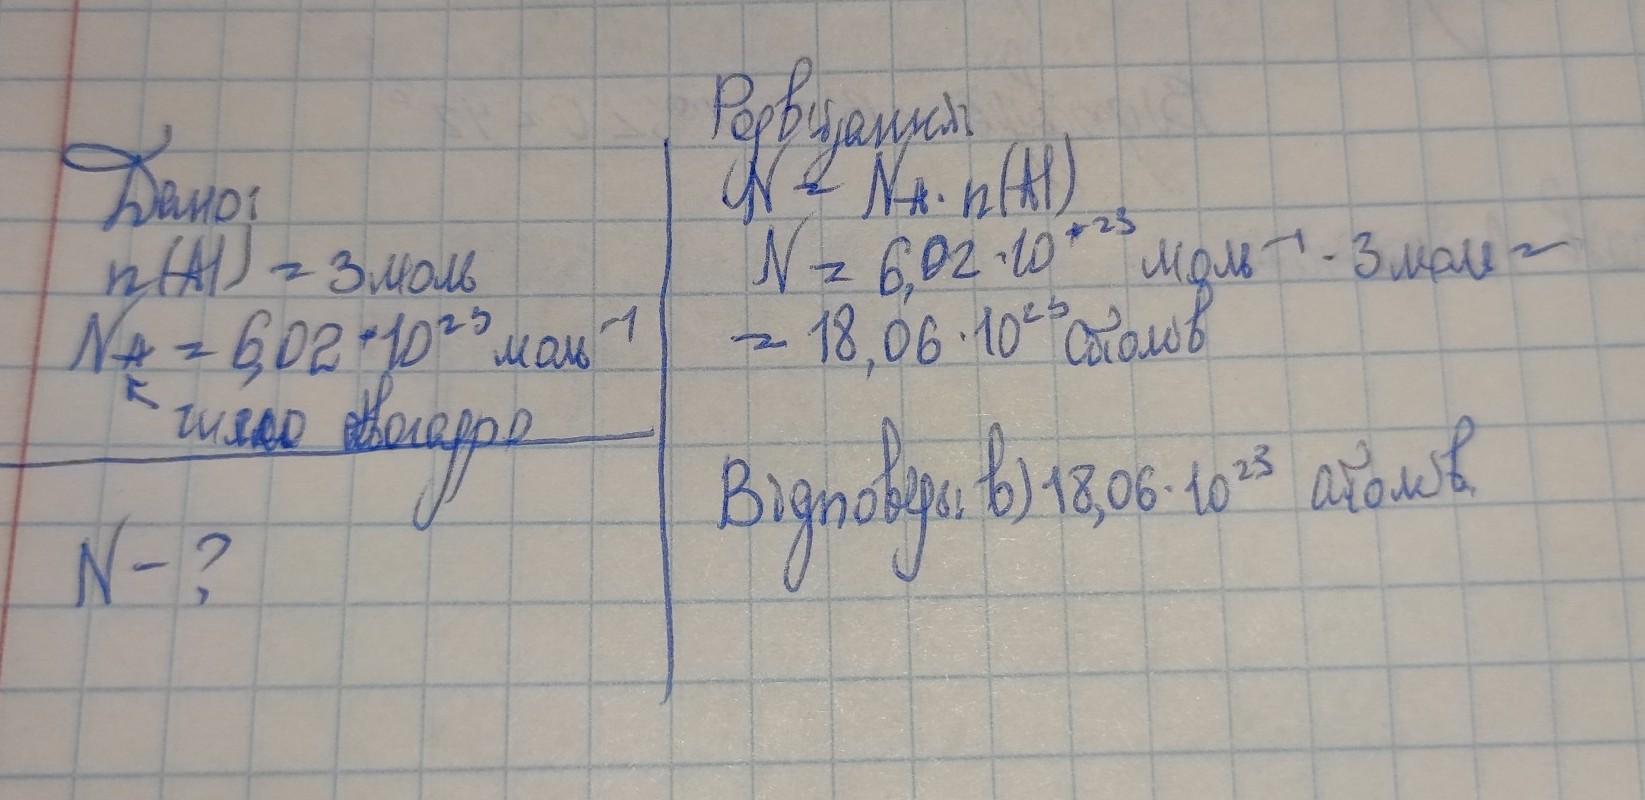 Дано:
n(Al) = 3 моль
N_A = 6,02 · 10²³ моль⁻¹
число Авогадро
N - ?
Розв'язання:
N = N_A · n(Al)
N = 6,02 · 10⁺²³ моль⁻¹ · 3 моль =
= 18,06 · 10²³ атомів
Відповідь: в) 18,06 · 10²³ атомів